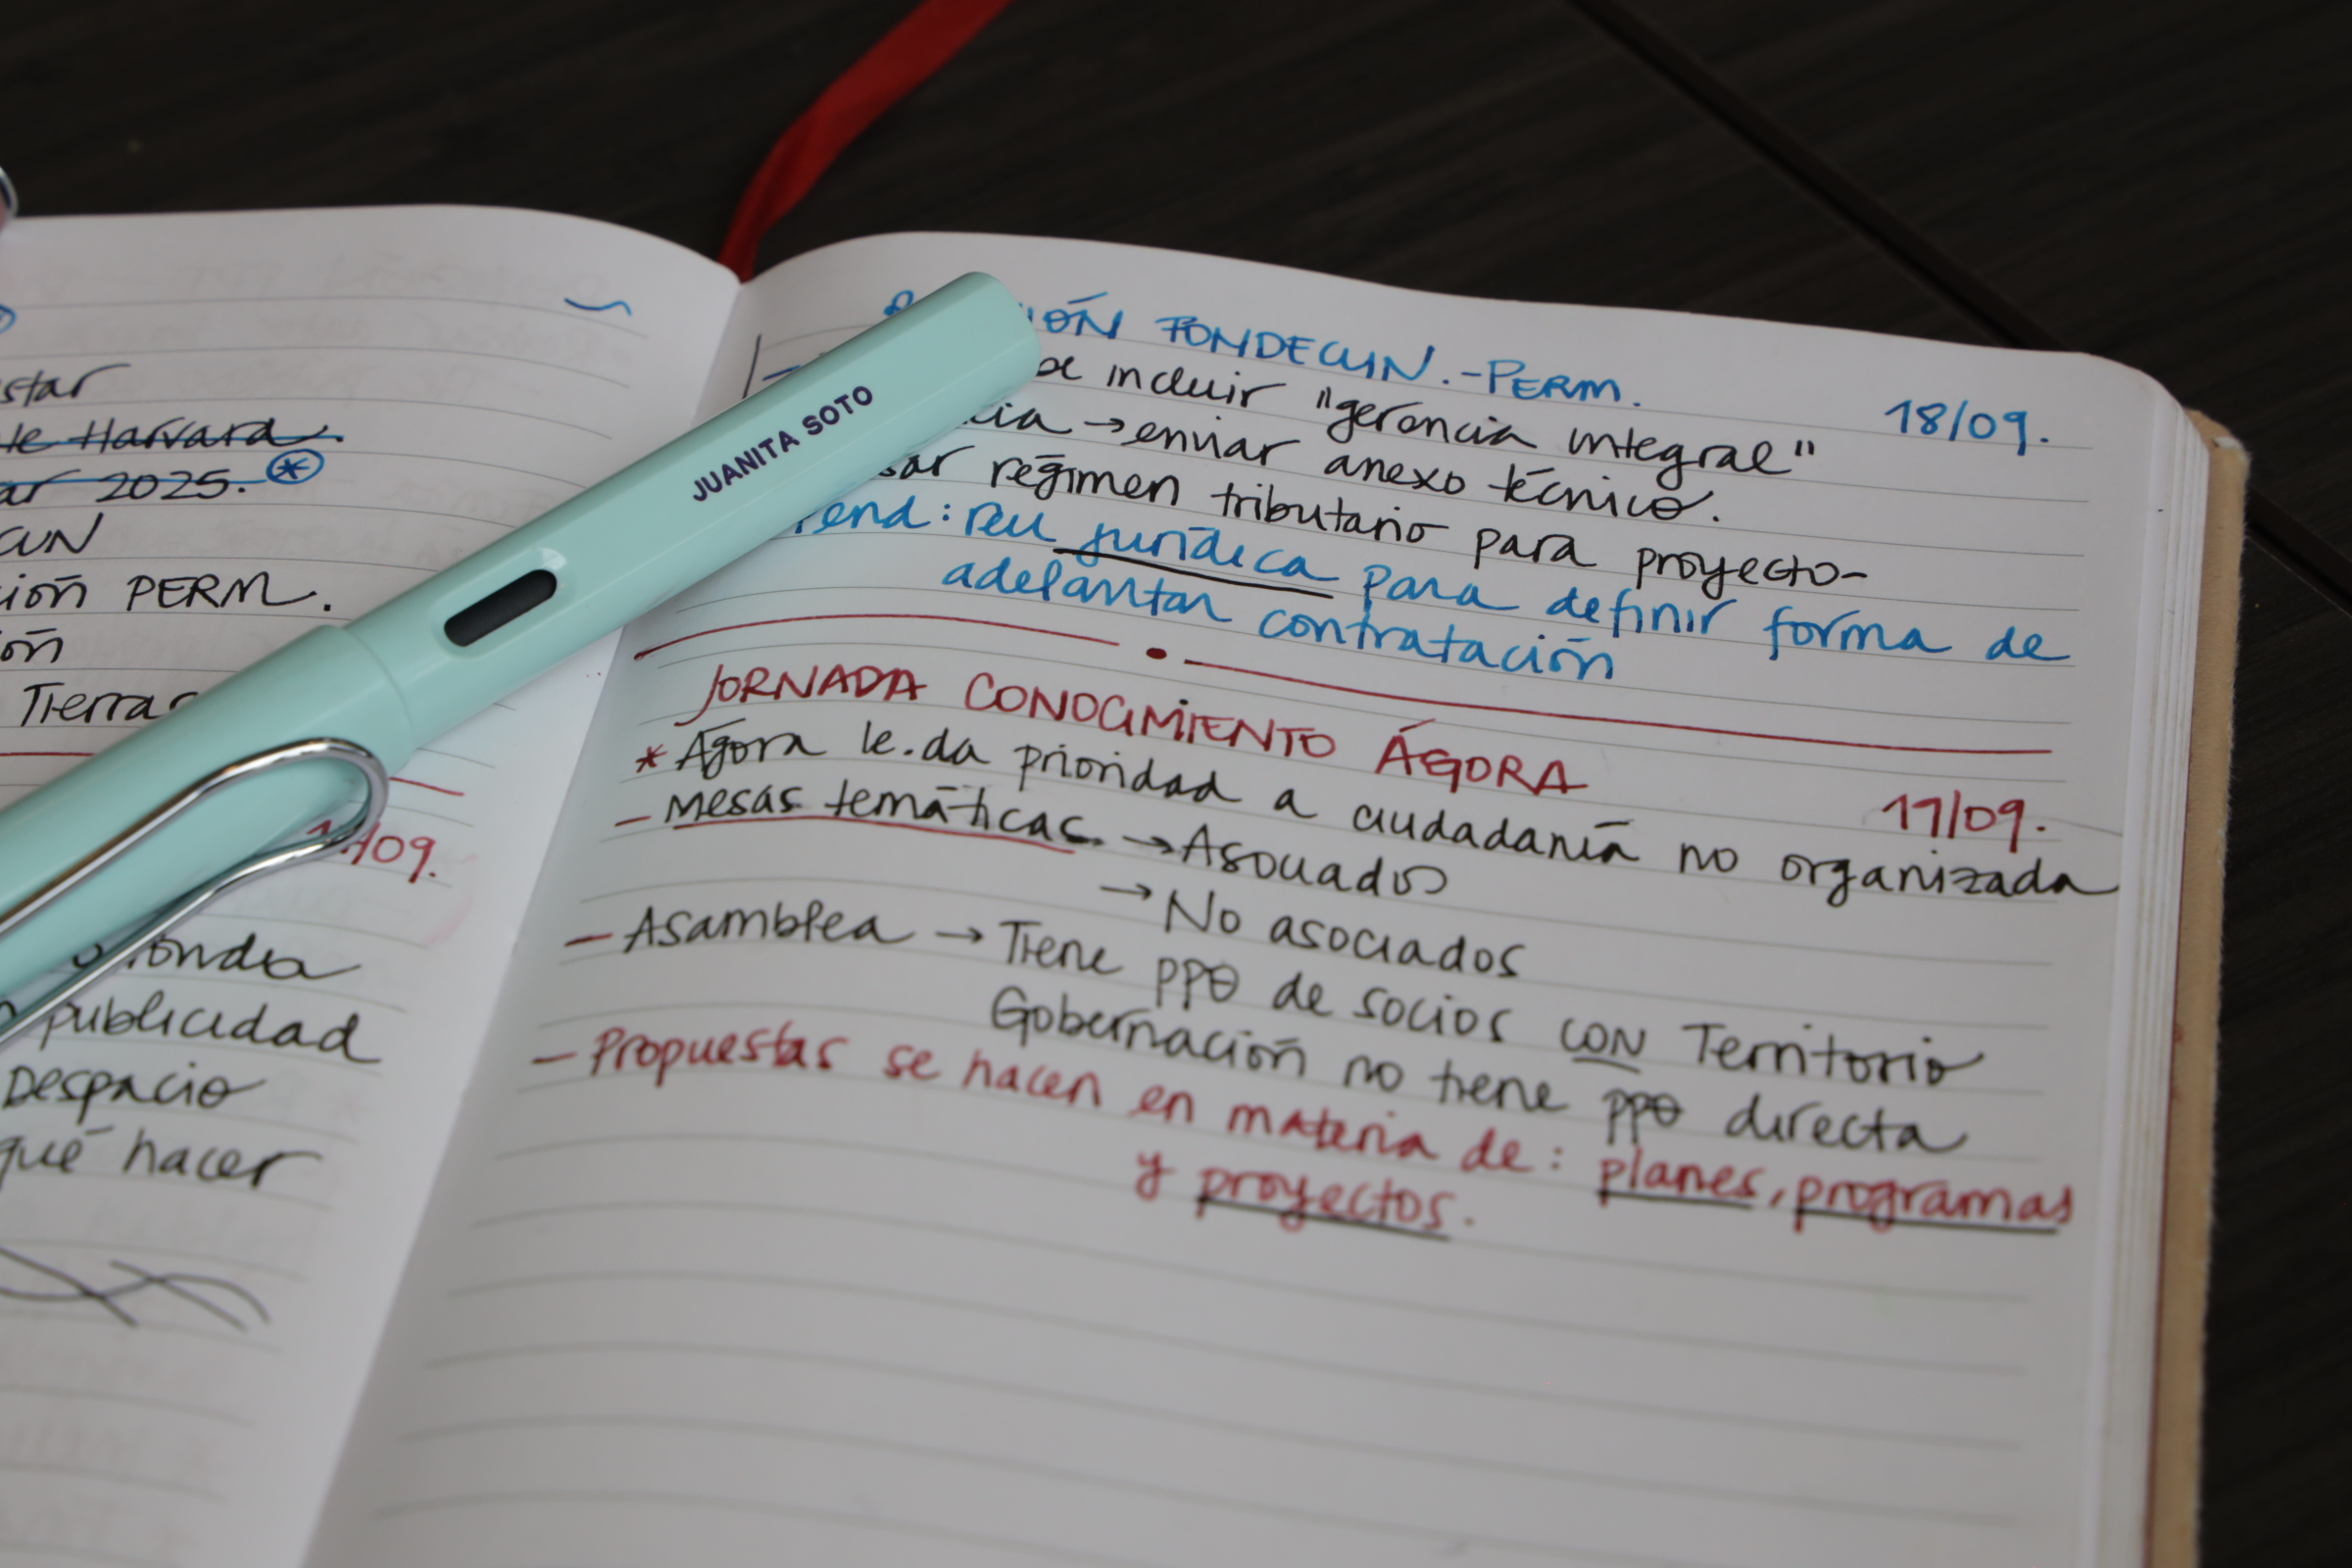 star
Harvard.
2025.
CUN
PERM.
Tierras
/09.
publicidad
Despacio
qué hacer
JUANITA SOTO
FONDECUN.-PERM.
18/09.
incluir "gerencia integral"
→enviar anexo técnico.
régimen tributario para proyecto-
reu jurídica para definir forma de
adelantar contratación
JORNADA CONOCIMIENTO ÁGORA
17/09.
* Ágora le.da prioridad a ciudadanía no organizada
- Mesas temáticas. → Asociados
→ No asociados
- Asamblea → Tiene PPO de socios CON Territorio
Gobernación no tiene PPO directa
- Propuestas se hacen en materia de: planes, programas
y proyectos.